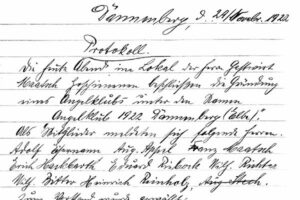 Dannenberg, d. 29. Novbr. 1922
Protokoll.
Die heute Abend im Lokal des Herrn Gastwirt
Maatsch beschlossen die Gründung
eines Angelklubs unter dem Namen
Angelklub 1922 Dannenberg (Elbe)!
Als Mitglieder meldeten sich folgende Herren.
Adolf Aug. Appel Franz Maatsch
Erich Eduard Wilh. Richter
Wilh. Ritter Heinrich Reinholz Aug.
Zum Vorstand wurde gewählt